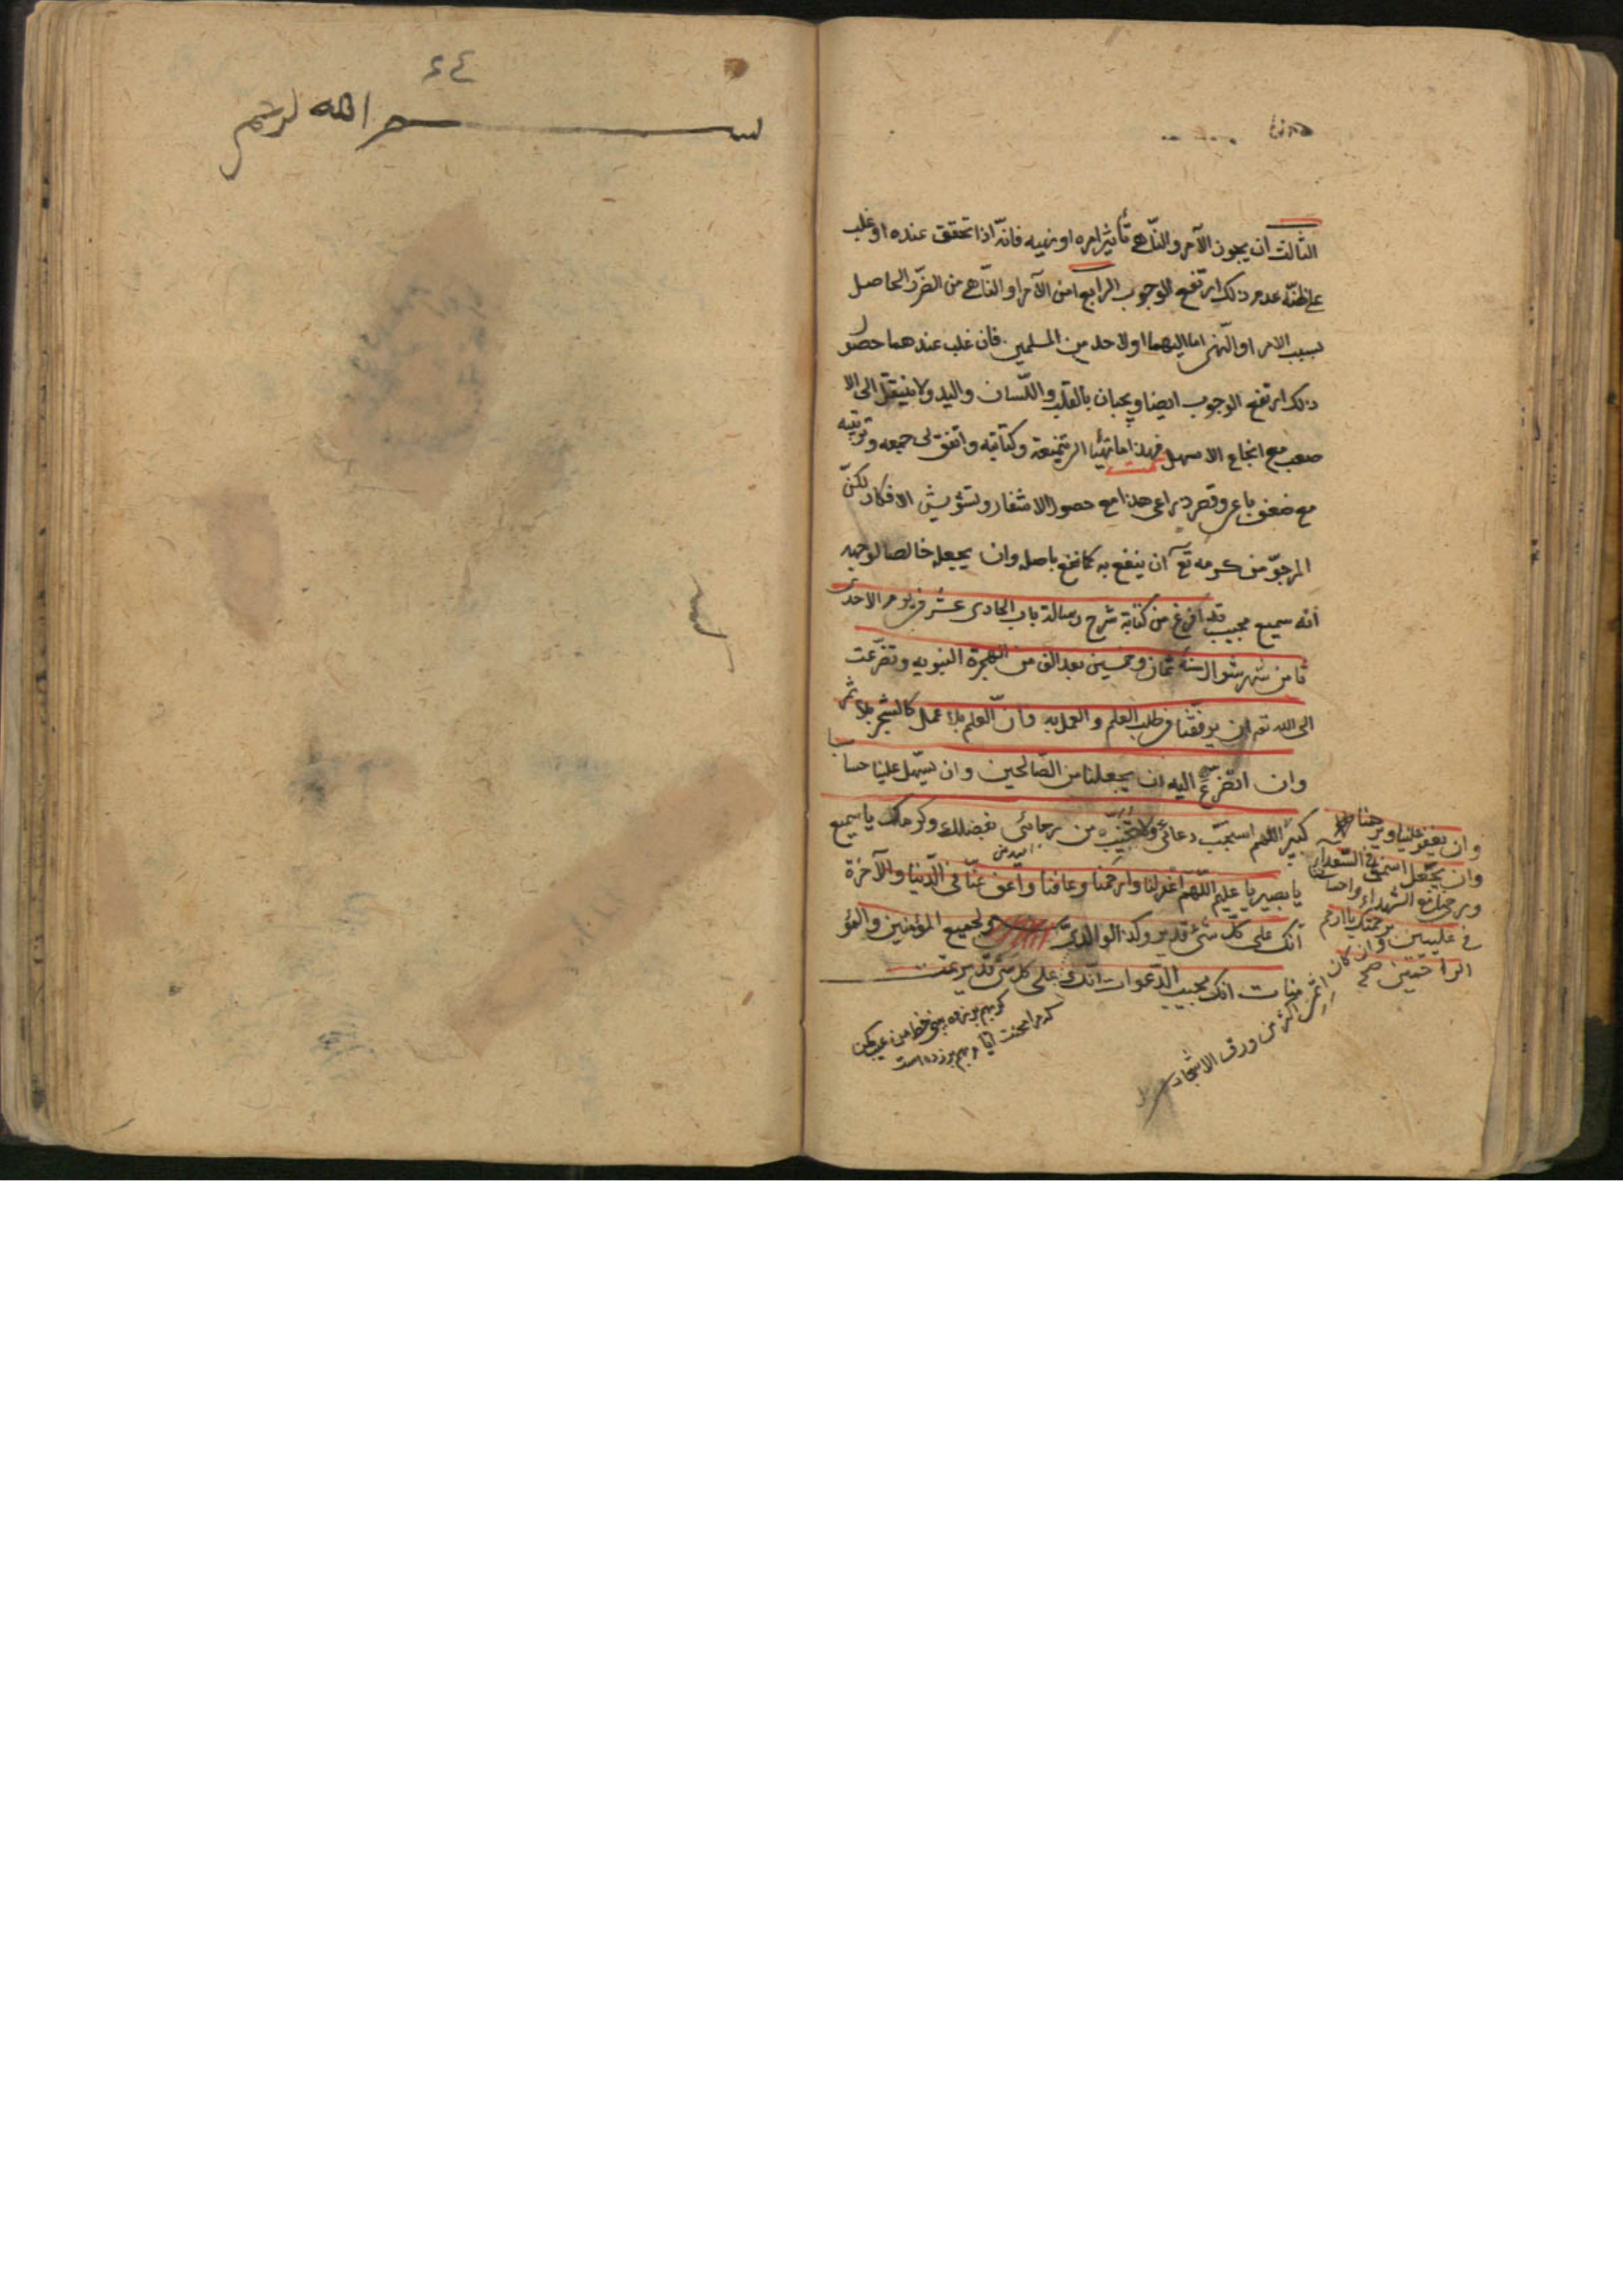 الثالث ان يجوز الآمر والنّاهى تأثير امره او نهيه فانّه اذا تحقق عنده او غلب
على ظنّه عدم ذلك ارتفع الوجوب الرابع امن الآمر او النّاهى من الضّرر الحاصل
بسبب الامر او النّهى اما اليهما او لاحد من المسلمين فان غلب عندهما حصول
ذلك ارتفع الوجوب ايضا ويجبان بالقلب واللّسان واليد ولا ينتقل الى الا
صعب مع انجاع الاسهل فهذا ما تهيّا لى تنميقه وكتابته واتفق لى جمعه وترتيبه
مع ضعف باعى وقصر ذراعى هذا مع حصول الاشغار وتشويش الافكار لكنّ
المرجوّ من كرمه تع ان ينفع به كما نفع باصله وان يجعله خالصا لوجهه
انّه سميع مجيب قد افرغ من كتابة شرح رسالة باب الحادى عشر فى يوم الاحد
ثامن شهر شوال سنة ثمان وخمسين بعد الف من الهجرة النبويه وتضرّعت
الى الله تع ان يوفّقنا فى طلب العلم والعمل به وانّ العلم بلا عمل كالشجر بلا ثمر
وان اتضرّع اليه ان يجعلنا من الصّالحين وان يسهّل علينا حسابا
كبير اللهم استجب دعائى من رجائى بفضلك وكرمك يا سميع
يا بصير يا عليم اللّهمّ اغفر لنا وارحمنا وعافنا واعف عنّا فى الدّنيا والآخرة
انّك على كلّ شئ قدير وكذا لوالدىّ ولجميع المؤمنين والمؤ
منات انك مجيب الدّعوات انّك على كل شئ قدير تمت
وان يغفر علينا ويرحمنا
وان يجعل اسمى فى السّعداء
وروحى مع الشهداء واحسانى
فى عليين برحمتك يا ارحم
الراحمين صح
وان كان اثمى اكثر من ورق الاشجار
كر بهم بر زده بينى خط من عيب مكن
كه مرا محنت ايام بهم بر زده است
٤٤
بسم الله الرحم